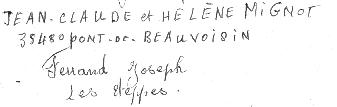 JEAN-CLAUDE et HÉLÈNE MIGNOT
38480 PONT-DE-BEAUVOISIN
Ferrand Joseph
Les Steppes.